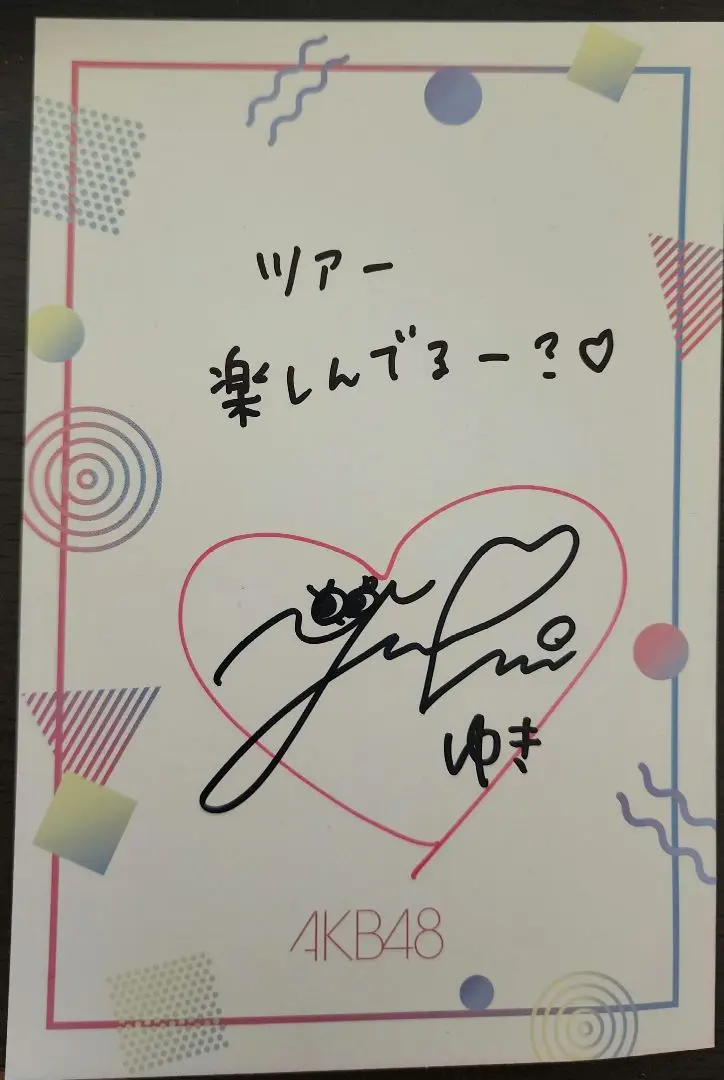 ツアー
楽しんでるー?♡
Yuki
ゆき
AKB48